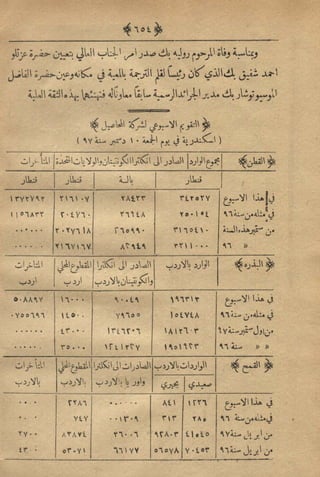 ﴿ ٦٥٤ ﴾
وبمناسبة وفاة المرحوم روليه بك صدر امر الجناب العالي بتعيين حضرة عزتلو
احمد شفيق بك الذي كان رئيسًا لقلم الترجمة بالمعية في مكانه وعين حضرة الفاضل
الموسيو توشار بك مدير الجرائد الرسمية سابقًا معاونًا له فنهنئهما بهذه الثقة العلية
﴿ التقويم الاسبوعي لشركة المحاصيل ﴾
( اسكندرية في يوم الجمعة ١٠ دسمبر سنة ٩٧ )
﴿ القطن ﴾ مجموع الوارد الصادر الى انكلترا الكونتيننتان والولايات المتحدة المتأخرات
قنطار بالة قنطار قنطار
في هذا الاسبوع ٣٤٢٥٢٧ ٢٨٤٢٣ ٢١٦١٠٧ ١٣٧٢٧٩٢
في مثله من سنة ٩٦ ٢٥٠١٥٤ ٢٦١٤٨ ٢٠٤٧٦٠ ١١٥٦٨٣٢
من سبتمبر هذه السنة ٣١٦٥٤١٠ ٢٦٥٩٩٠ ٢٠٢٧٦١٨ ٠٠٠٠٠٠
» » ٩٦ ٣٢١١٠٠٠ ٨٢٩٤٩ ٢١٦٧١٦٧ ٠٠٠٠٠٠
﴿ البذره ﴾ الوارد بالاردب الصادر الى انكلترا المقطوع المحلي المتأخرات
وانكونتينان بالاردب اردب اردب
في هذا الاسبوع ١٩٦٣١٣ ٩٠٠٤٩ ١٦٠٠٠ ٥٠٨٨٩٧
في مثله من سنة ٩٦ ١٥٤٧٤٨ ٧٩٦٥٥ ١٤٥٠٠ ٠٧٥٥٦٩٦
من اول سبتمبر سنة ٩٧ ١٨١٢٦٠٣ ١٣٤٦٢٠٦ ٤٣٠٠٠ ٠٠٠٠٠٠
» » سنة ٩٦ ١٩٥١٦٢٣ ١٢٤١٣٢٧ ٣٥٠٠٠ ٠٠٠٠٠٠
﴿ القمح ﴾ الواردات بالاردب الصادرات الى انكلترا المقطوع المحلي المتأخرات
صعيدي بحيري واوربا بالاردب بالاردب بالاردب
في هذا الاسبوع ١٢٢٦ ٨٤١ ٠٠٠٠٠٠ ٢٢٨٦ ٠٠٠٠
في مثله من سنة ٩٦ ٢٨٥ ٣١٣ ٠٠١٣٠٩ ٧٤٧ ٠٠٠٠
من ابريل سنة ٩٧ ٤١٥٤٥ ٩٢٨٠٣ ٣٦٠٠٦ ٨٣٨٧٤ ٢٧٠٠
من ابريل سنة ٩٦ ٧٠٤٥٣ ٥٦٥٧٨ ٦٦١٧٧ ٥٣٠٧١ ٤٣٠٠